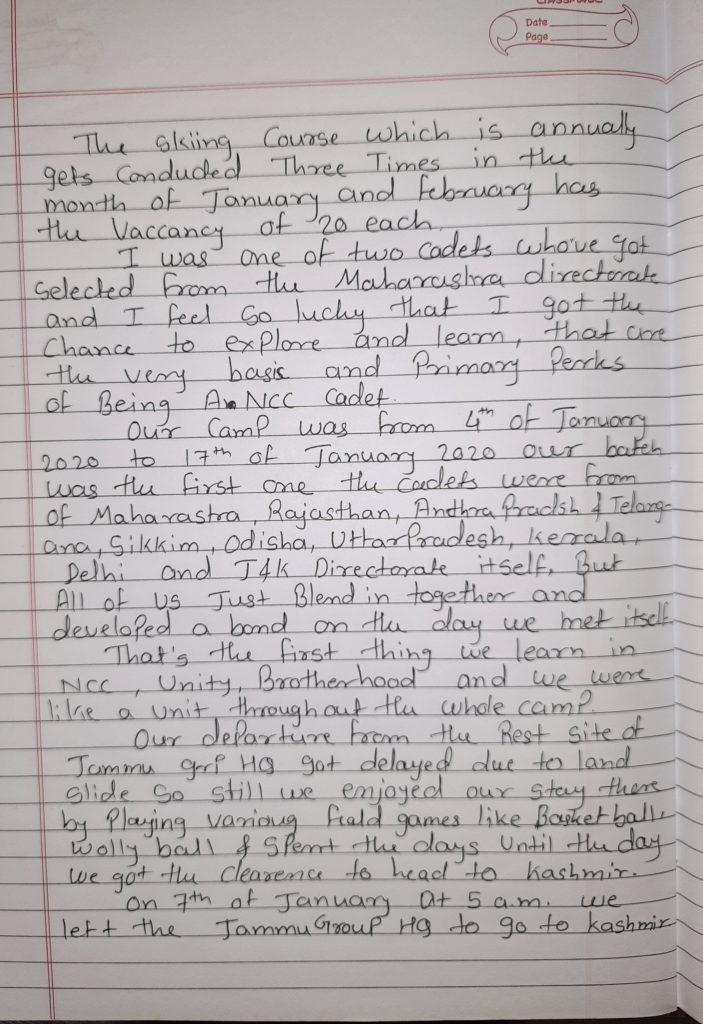 CLASSMATE
Date
Page
The skiing Course which is annually
gets Conducted Three Times in the
month of January and February has
the Vaccancy of 20 each.
I was one of two cadets who've got
Selected from the Maharashra directorate
and I feel so lucky that I got the
Chance to explore and learn, that are
the very basis and Primary Perks
of Being A NCC Cadet.
Our Camp was from 4th of January
2020 to 17th of January 2020 our batch
was the first one the Cadets were from
of Maharastra, Rajasthan, Andhra Pradsh & Telang-
ana, Sikkim, Odisha, UttarPradesh, Kerala,
Delhi and J&K Directorate itself, But
All of us Just Blend in together and
developed a bond on the day we met itself
That's the first thing we learn in
NCC, Unity, Brotherhood and we were
like a unit throughout the whole camp.
Our departure from the Rest site of
Jammu grp HQ got delayed due to land
slide So still we enjoyed our stay there
by Playing various field games like Basketball,
Wolly ball & Spent the days Until the day
we got the Clearence to head to Kashmir.
On 7th of January At 5 a.m. we
left the Jammu Group HQ to go to Kashmir